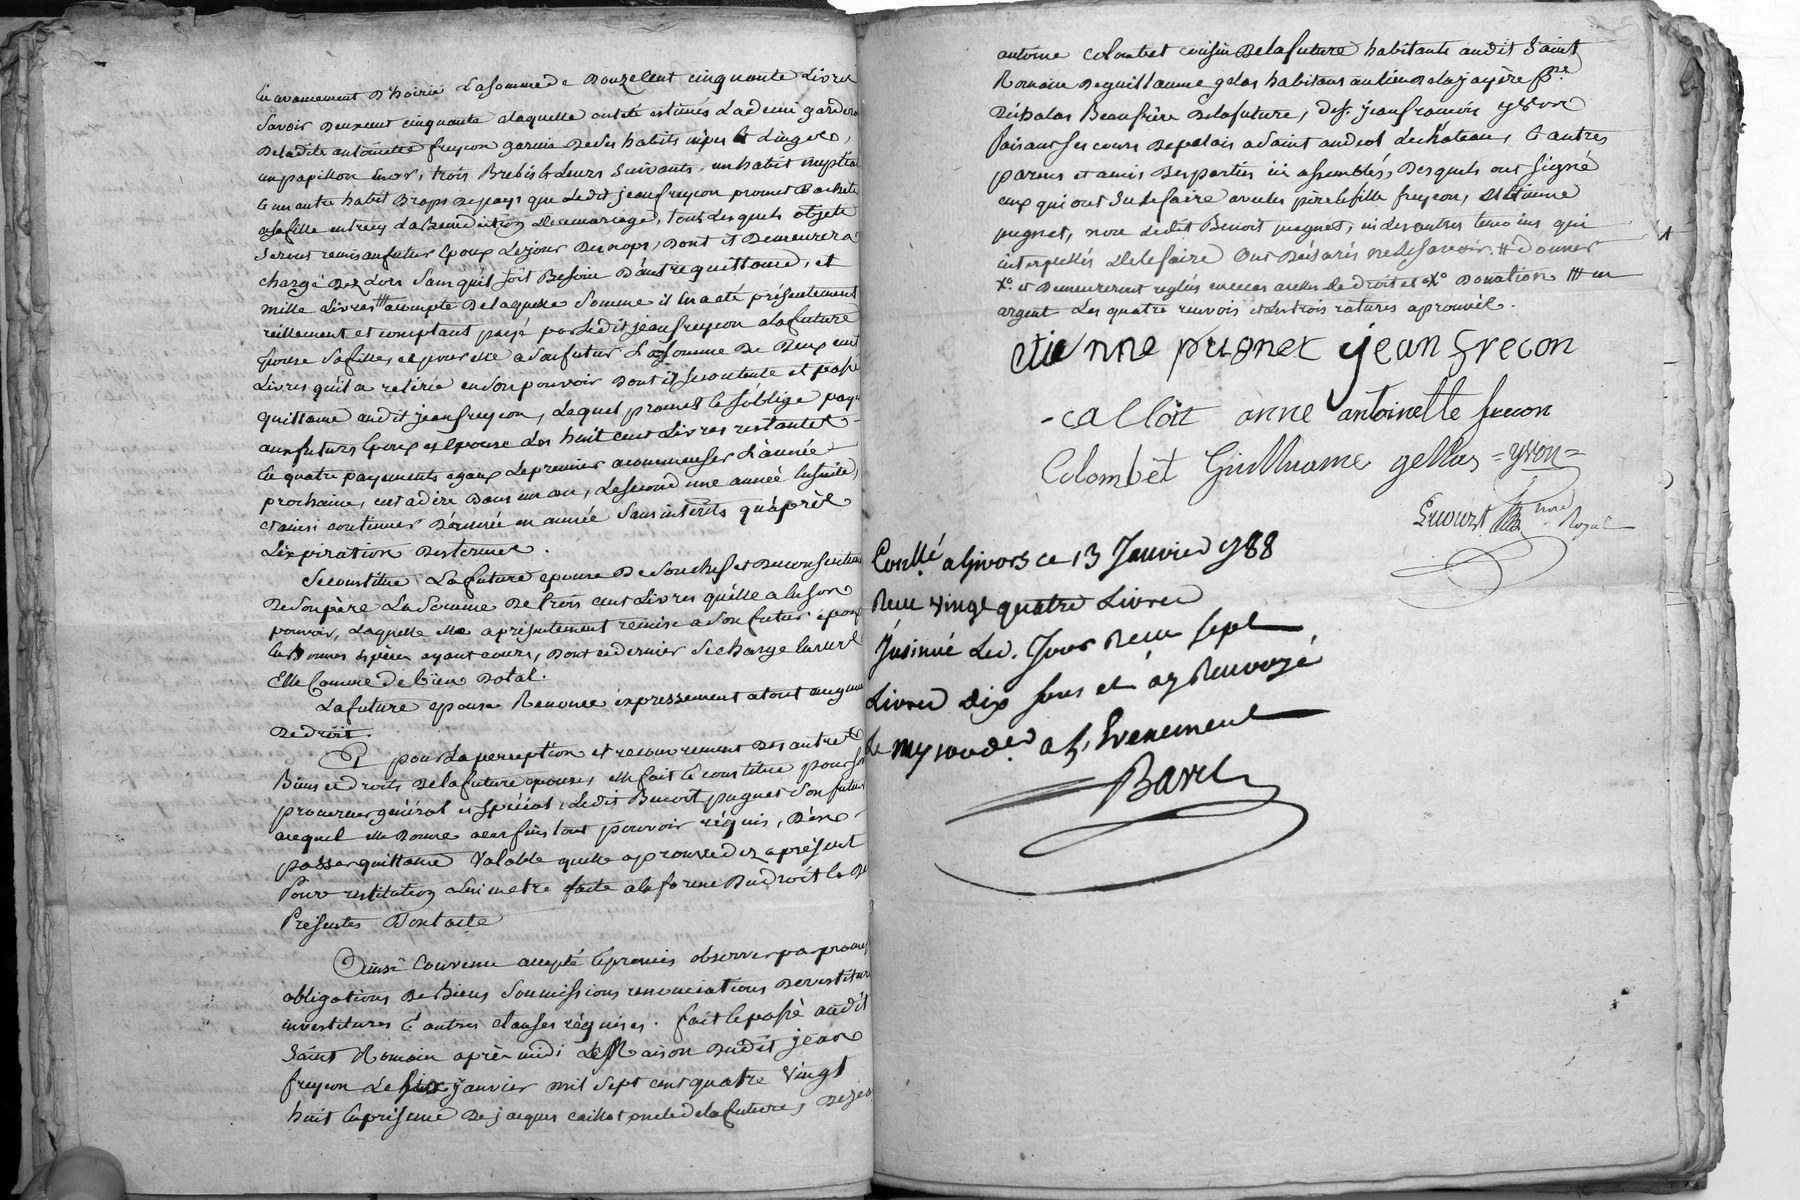 En avancement D'hoirie La somme de Douze Cent cinquante Livres
Savoir Deux cent cinquante a laquelle ont été estimés La demi garderobe
De ladite antoinette freycon garnie De ses habits nipes & Linges,
un papillon d'or, trois Brebis & Leurs Suivants, un habit nuptial
& un autre habit Draps De pays que Ledit jean freycon promet D'acheter
a sa fille entre cy & la Benediction De ce mariage, tous Lesquels objets
Seront remis au futur Epoux Le jour Des nopces, Dont il Demeurera
chargé Dez Lors Sans qu'il soit Besoin D'autre quittance, et
mille Livres acompte De laquelle Somme il en a été présentement
réellement et comptant payé par Ledit jean freycon a la future
Epouse Sa fille, et pour elle a Son futur La Somme De Deux cent
Livres qu'il a retirée en Son pouvoir Dont il Se contente et passe
quittance audit jean freycon, Lequel promet & S'oblige payer
aux futurs Epoux et Epouse Les huit cent Livres restantes
En quatre payements egaux Le premier a commencer L'année
prochaine, c'est a dire Dans un an, Le Second une année Ensuite,
et ainsi continuer D'année en année Sans intérêts qu'après
L'expiration Des termes.
Se constitue La future epouse De Son chef et Du consentement
De Son père La Somme De trois cent Livres qu'elle a en Son
pouvoir, Laquelle elle a présentement remise a Son futur époux
En Bonnes Espèces ayant cours, Dont ce dernier Se charge Envers
Elle Comme de bien Dotal.
La future epouse Renonce expressement a tout augment
De droit.
Et pour La perception et recouvrement Des autres
Biens et Droits De la future epouse, elle fait & constitue pour Son
procureur général et spécial Ledit Benoit pugnet Son futur
auquel elle Donne a ces fins tout pouvoir réquis, D'en
passer quittance Valable qu'elle aprouve dez aprésent
Pour restitution Lui etre faite a la forme Du Droit & De
Présentes Dont acte
Ainsi Convenu accepté & promis observer par promesses
obligations De Biens Soumissions renonciations Devestitures
investitures & autres clauses réquises. fait & passé audit
Saint Romain après midi Maison Dudit jean
freycon Le Six janvier mil Sept cent quatre Vingt
huit En présence De jacques caillot oncle de la future, De jean
antoine colombet cousin De la future habitants audit Saint
Romain De guillaume gelas habitant au lieu De la jayère psse
D'échalas Beaufrère De la future, De Sr. jean françois yvon
faisant Ses cours De palais a Saint andéol Le château, & autres
parens et amis Des parties ici assemblés, Desquels ont Signé
ceux qui ont Su Le faire avec les père & fille freycon, et Etienne
pugnet, non Ledit Benoit pugnet, ni Les autres temoins qui
interpellés De Le faire Ont Déclarés ne Le Savoir. # Donner
X° et Demeureront reglés au cas avec Le droit et X° Donation ## en
argent Les quatre renvois et Les trois ratures aprouvés.
etienne pugnet jean frecon
- calloit anne antoinette frecon
Colombet Guillaume gellas =yvon=
noré
Royal
Conllé a Givors ce 13 Janvier 1788
Reçu vingt quatre Livres
Insinué Led. Jour Reçu sept
Livres dix sous et ay Renvoyé
a L'Evenement
Barel